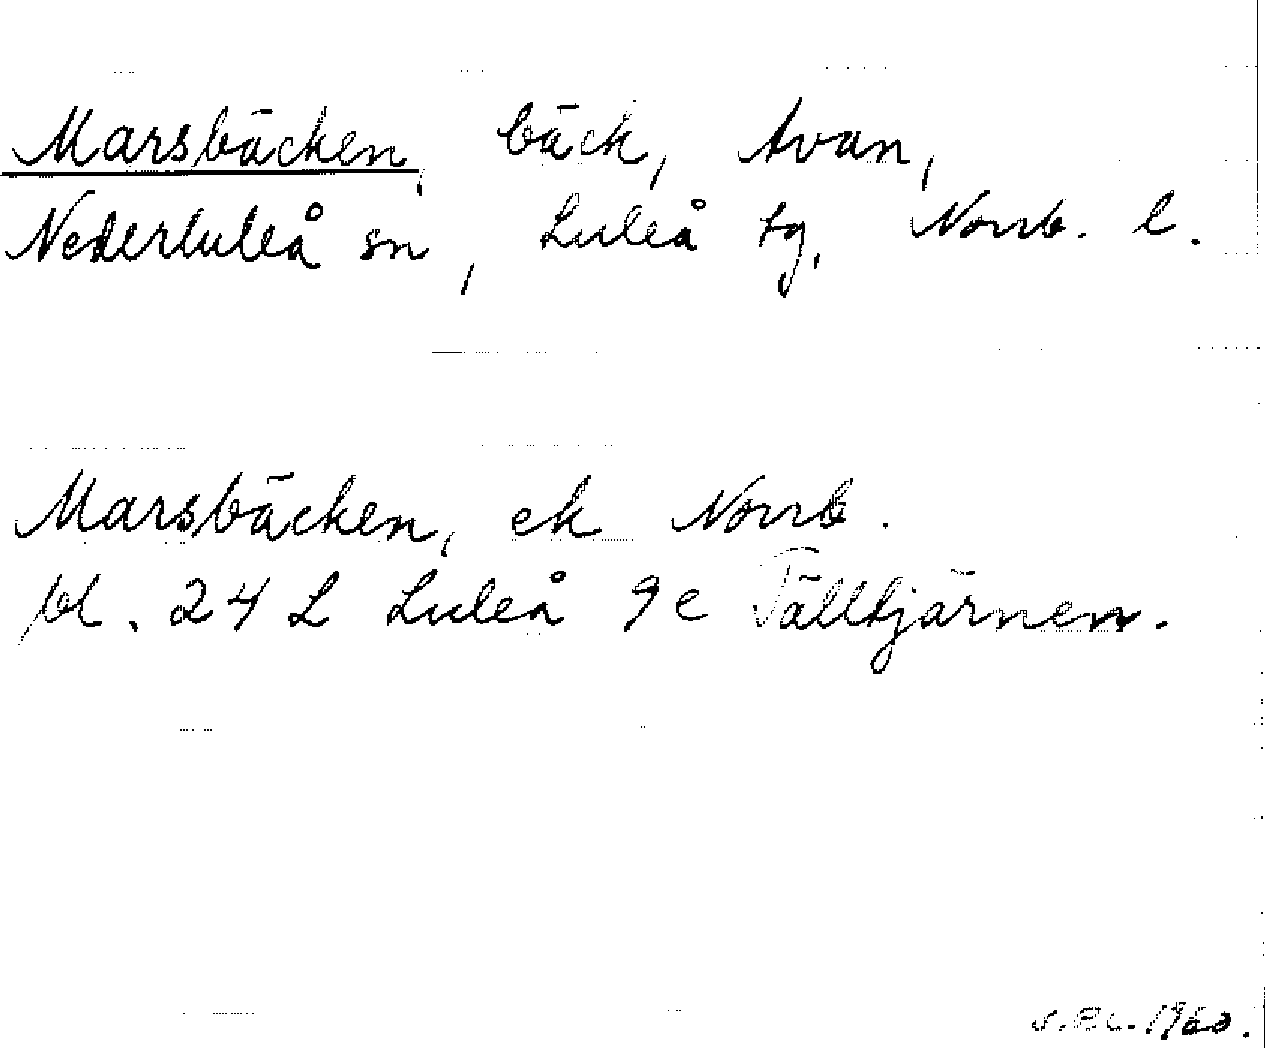 Marsbäcken, bäck, Avan,
Nederluleå sn, Luleå tg, Norrb. l.
Marsbäcken, ek Norrb.
bl. 24 L Luleå 9 c Tälltjärnen.
1960.